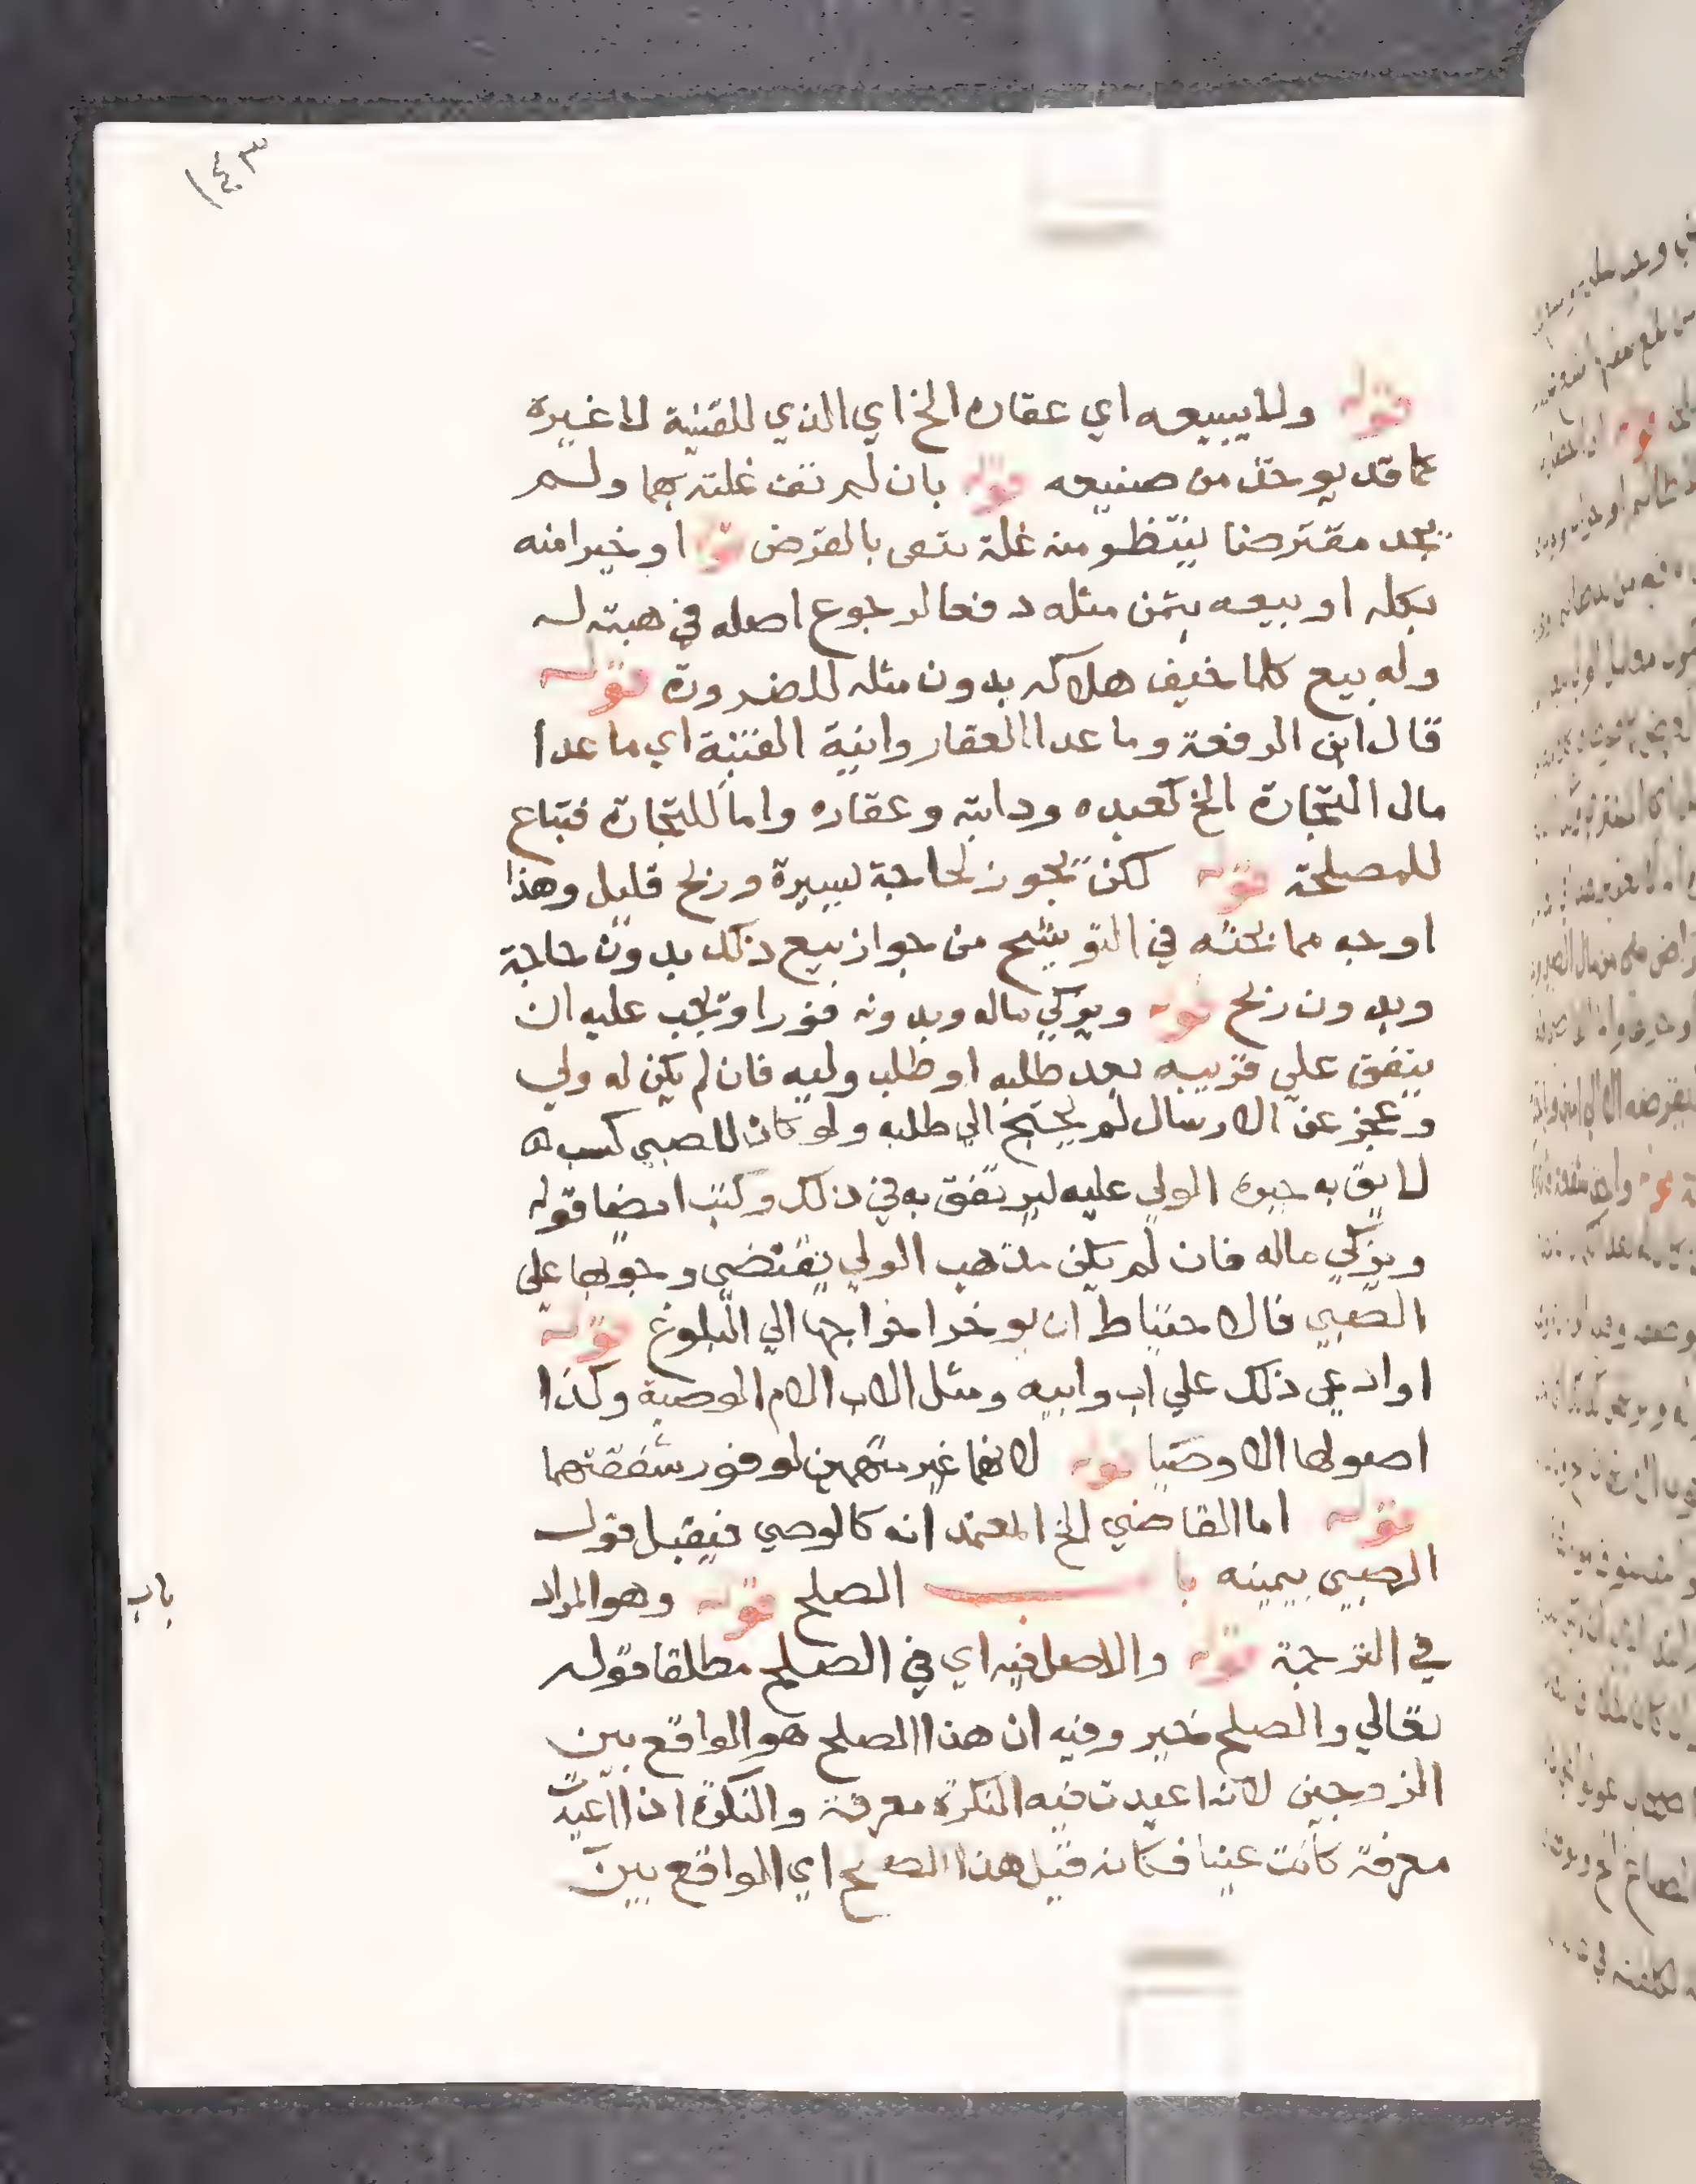 ١٤٣
قوله ولا يبيعه اي عقاره الخ اي الذي للقنية لا غيره
كما قد يوخذ من صنيعه قوله بان لم تف غلته بهما ولم
يجد مقترضا ينتظر منه غلة تفى بالقرض قوله او خيرا منه
بكله او بيعه بثمن مثله دفعا لرجوع اصله في هبته له
وله بيع كلما خيف هلاكه بدون مثله للضرورة قوله
قال ابن الرفعة وما عدا العقار وانية القنية اي ما عدا
مال التجارة الخ كعبده ودابته وعقاره واما للتجارة فتباع
للمصلحة قوله لكن تجوز لحاجة يسيرة وربح قليل وهذا
اوجه مما بحثه في التوشيح من جواز بيع ذلك بدون حاجة
وبدون ربح قوله ويزكي ماله وبدونه فورا وتجب عليه ان
ينفق علي قريبه بعد طلبه او طلب وليه فان لم يكن له ولي
وعجز عن الارسال لم يحتج الي طلبه ولو كان للصبي كسب
لايق به جبره الولي عليه ليرتفق به في ذلك وكتب ايضا قوله
ويزكي ماله فان لم يكن مذهب الولي يقتضي وجوبها علي
الصبي فالاحتياط ان يوخر اخراجها الي البلوغ قوله
او ادعي ذلك علي اب وابيه ومثل الاب الام الوصية وكذا
اصولها الاوصيا قوله لانهما غير متهمين لوفور شفقتهما
قوله اما القاضي الخ المعتمد انه كالوصي فيقبل قول
الصبي بيمينه باب الصلح قوله وهو المراد
باب
في الترجمة قوله والاصل فيه اي في الصلح مطلقا قوله
تعالي والصلح خير وفيه ان هذا الصلح هو الواقع بين
الزوجين لانه اعيدت فيه النكرة معرفة والنكرة اذا اعيدت
معرفة كانت عينا فكانه قيل هذا الصلح اي الواقع بين